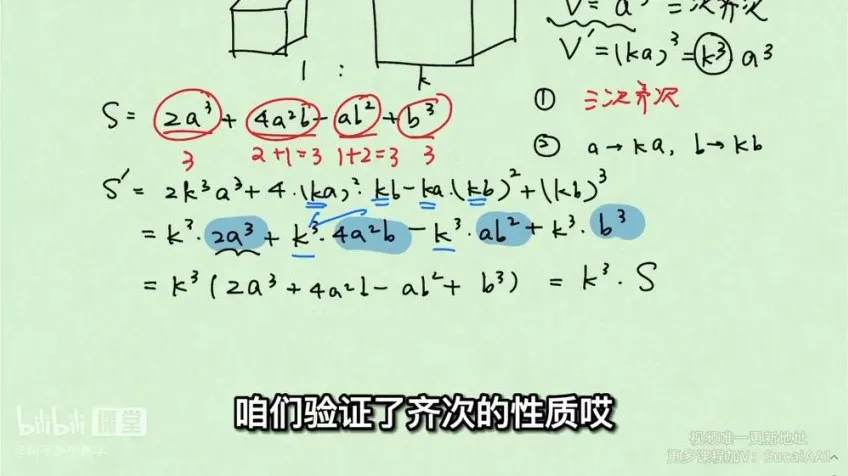 V = a³ 三次齐次
V′ = (ka)³ = k³ a³
1 : k
S = 2a³ + 4a²b - ab² + b³
3 2+1=3 1+2=3 3
① 三次齐次
② a→ka, b→kb
S′ = 2k³a³ + 4·(ka)²·kb - ka·(kb)² + (kb)³
= k³·2a³ + k³·4a²b - k³·ab² + k³·b³
= k³(2a³ + 4a²b - ab² + b³) = k³·S
咱们验证了齐次的性质哎
bilibili 课堂
视频唯一更新地址
更多课程加V：SucaiAA1